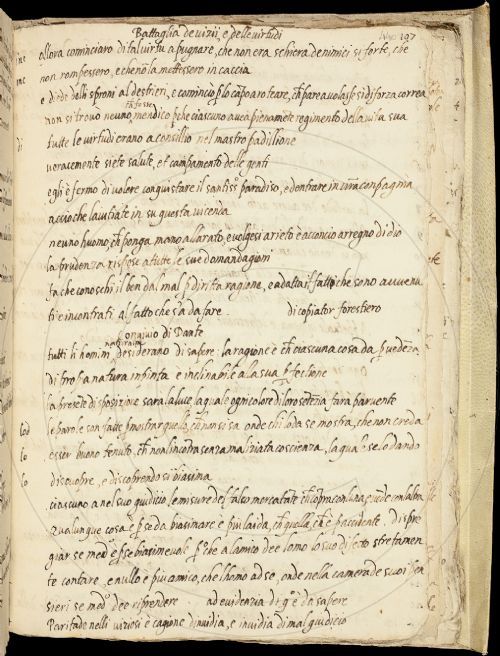 Battaglia de vizii, e delle virtudi
197
allora cominciaro di tal virtu a pugnare, che non era schiera de nimici si forte, che
non rompessero, e che nō la mettessero in caccia
e diede delli sproni al destrieri, e cominciò p lo cāpo a roteare, ch̄ parea volasse si di forza correa
non si trovo neuno, ch̄ fosse mendico pche ciascuno avea pienamēte regimento della vita sua
tutte le virtudi erano a consillio nel mastro padillione
veracemente siete salute, et campamento delle genti
egli è fermo di volere conquistare il santiss° paradiso, e d'entrare in vr̄a conpagnia
acciò che l'aiutiate in su questa vicenda
neuno huomo, ch̄ ponga mano all'arato, e volgesi arieto è acconcio al regno di dio
la prudenza rispose a tutte le sue domandagioni
fa che conoschi il ben dal mal p diritta ragione, e adatta il fatto che sono avvenu
ti e incontrati al fatto che s'a da fare. di copiator forestiero
Convivio di Dante
tutti li homini naturalmte desiderano di sapere: la ragione e ch̄ ciascuna cosa da pvedeza
di propia natura inpinta e inclinabile a la sua pfectione
la presēte disposizione sarà la luce, la quale ogni colore di loro setenzia farà parvente
e paro, e son fatte p mostrar quello, ch̄ non si sa. onde chi loda se mostra, che non creda
esser buono tenuto. ch̄ non l'incōtra senza maliziata coscienza, la qual se lodando
discuopre, e discoprendo si biasima
ciascuno a nel suo giudicio le misure del falso mercatante ch̄ cōpra con l'una, e vēde con l'altra
Qualunque cosa è p se da biasimare è piu laida, ch̄ quella, ch̄ è p accidente. Dispre
giar se med° è p se biasimevole p° che a l'amico dee l'omo lo suo difetto stretamen
te contare, e nullo è piu amico, che l'homo a se, onde nella camera de suoi pen
sieri se med° deo riprendere ad evidenzia di q° è da sapere
Paritade nelli viziosi è cagione d'invidia, e invidia di mal giudicio